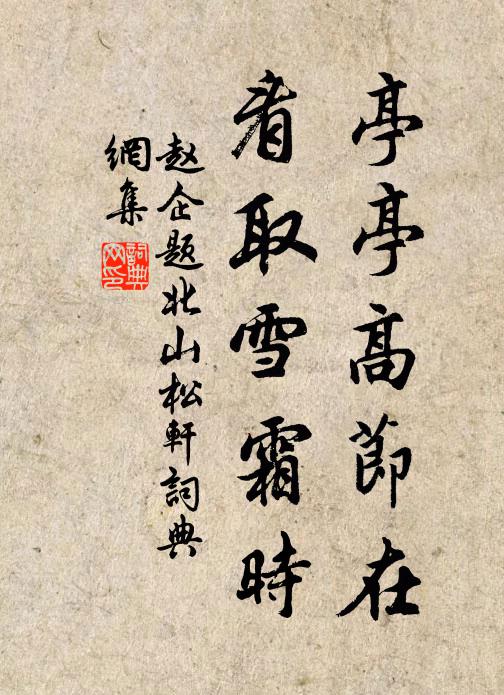 亭亭高節在
看取雪霜時
赵企題北山松軒詞典
網集
詞典
网印